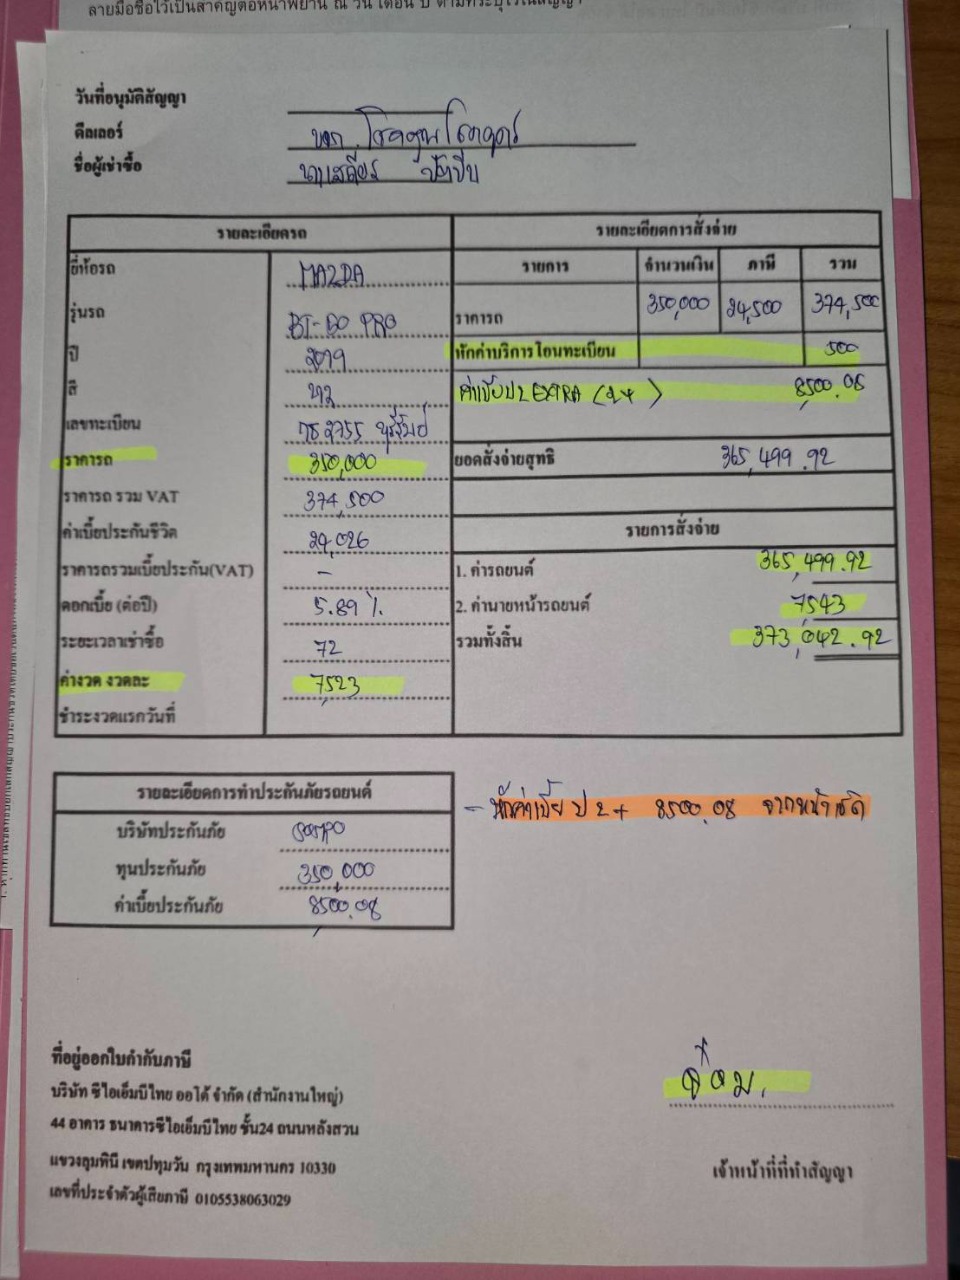 ลายมือชื่อไว้เป็นสำคัญต่อหน้าพยาน ณ วัน เดือน ปี ตามที่ระบุไว้ในสัญญา
วันที่อนุมัติสัญญา
ดีลเลอร์
ชื่อผู้เช่าซื้อ
รายละเอียดรถ
ยี่ห้อรถ MAZDA
รุ่นรถ BT-50 PRO
ปี 2019
สี
เลขทะเบียน 2755 บุรีรัมย์
ราคารถ 350,000
ราคารถ รวม VAT 374,500
ค่าเบี้ยประกันชีวิต 24,026
ราคารถรวมเบี้ยประกัน(VAT) -
ดอกเบี้ย (ต่อปี) 5.89 %
ระยะเวลาเช่าซื้อ 72
ค่างวด งวดละ 7,523
ชำระงวดแรกวันที่
รายละเอียดการสั่งจ่าย
รายการ จำนวนเงิน ภาษี รวม
ราคารถ 350,000 24,500 374,500
หักค่าบริการโอนทะเบียน 500
ค่าเบี้ย ป 2 EXTRA (2+) 8,500.08
ยอดสั่งจ่ายสุทธิ 365,499.92
รายการสั่งจ่าย
1. ค่ารถยนต์ 365,499.92
2. ค่านายหน้ารถยนต์ 7,543
รวมทั้งสิ้น 373,042.92
รายละเอียดการทำประกันภัยรถยนต์
บริษัทประกันภัย
ทุนประกันภัย 350,000
ค่าเบี้ยประกันภัย 8,500.08
- หักค่าเบี้ย ป 2+ 8500.08 จากหน้าเช็ค
ที่อยู่ออกใบกำกับภาษี
บริษัท ซีไอเอ็มบีไทย ออโต้ จำกัด (สำนักงานใหญ่)
44 อาคาร ธนาคารซีไอเอ็มบีไทย ชั้น24 ถนนหลังสวน
แขวงลุมพินี เขตปทุมวัน กรุงเทพมหานคร 10330
เลขที่ประจำตัวผู้เสียภาษี 0105538063029
เจ้าหน้าที่ที่ทำสัญญา